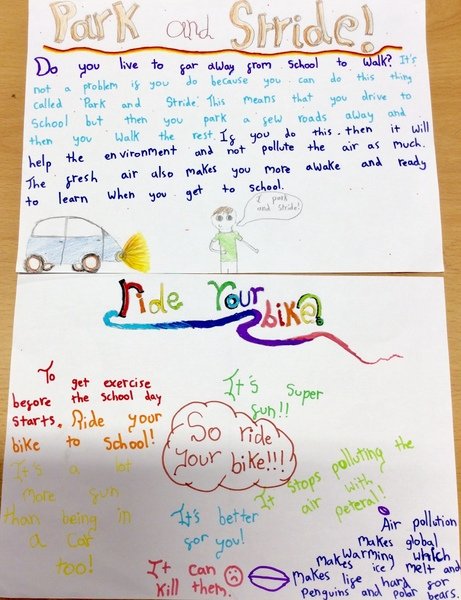 Park and Stride!
Do you live to far away from School to walk? It's
not a problem if you do because you can do this thing
called 'Park and Stride' This means that you drive to
School but then you park a few roads away and
then you walk the rest. If you do this then it will
help the environment and not pollute the air as much.
The fresh air also makes you more awake and ready
to learn when you get to school.
I park
and stride!
Ride Your
bike
To get exercise
before the school day
starts. Ride your
bike to School!
It's a lot
more fun
than being in
a car
too!
It's super
fun!!
So ride
your bike!!!
It stops polluting the
air with
peteral!
It's better
for you!
It can
kill them.
Air pollution
makes global
warming which
makes ice melt and
makes life hard for
Penguins and polar bears.